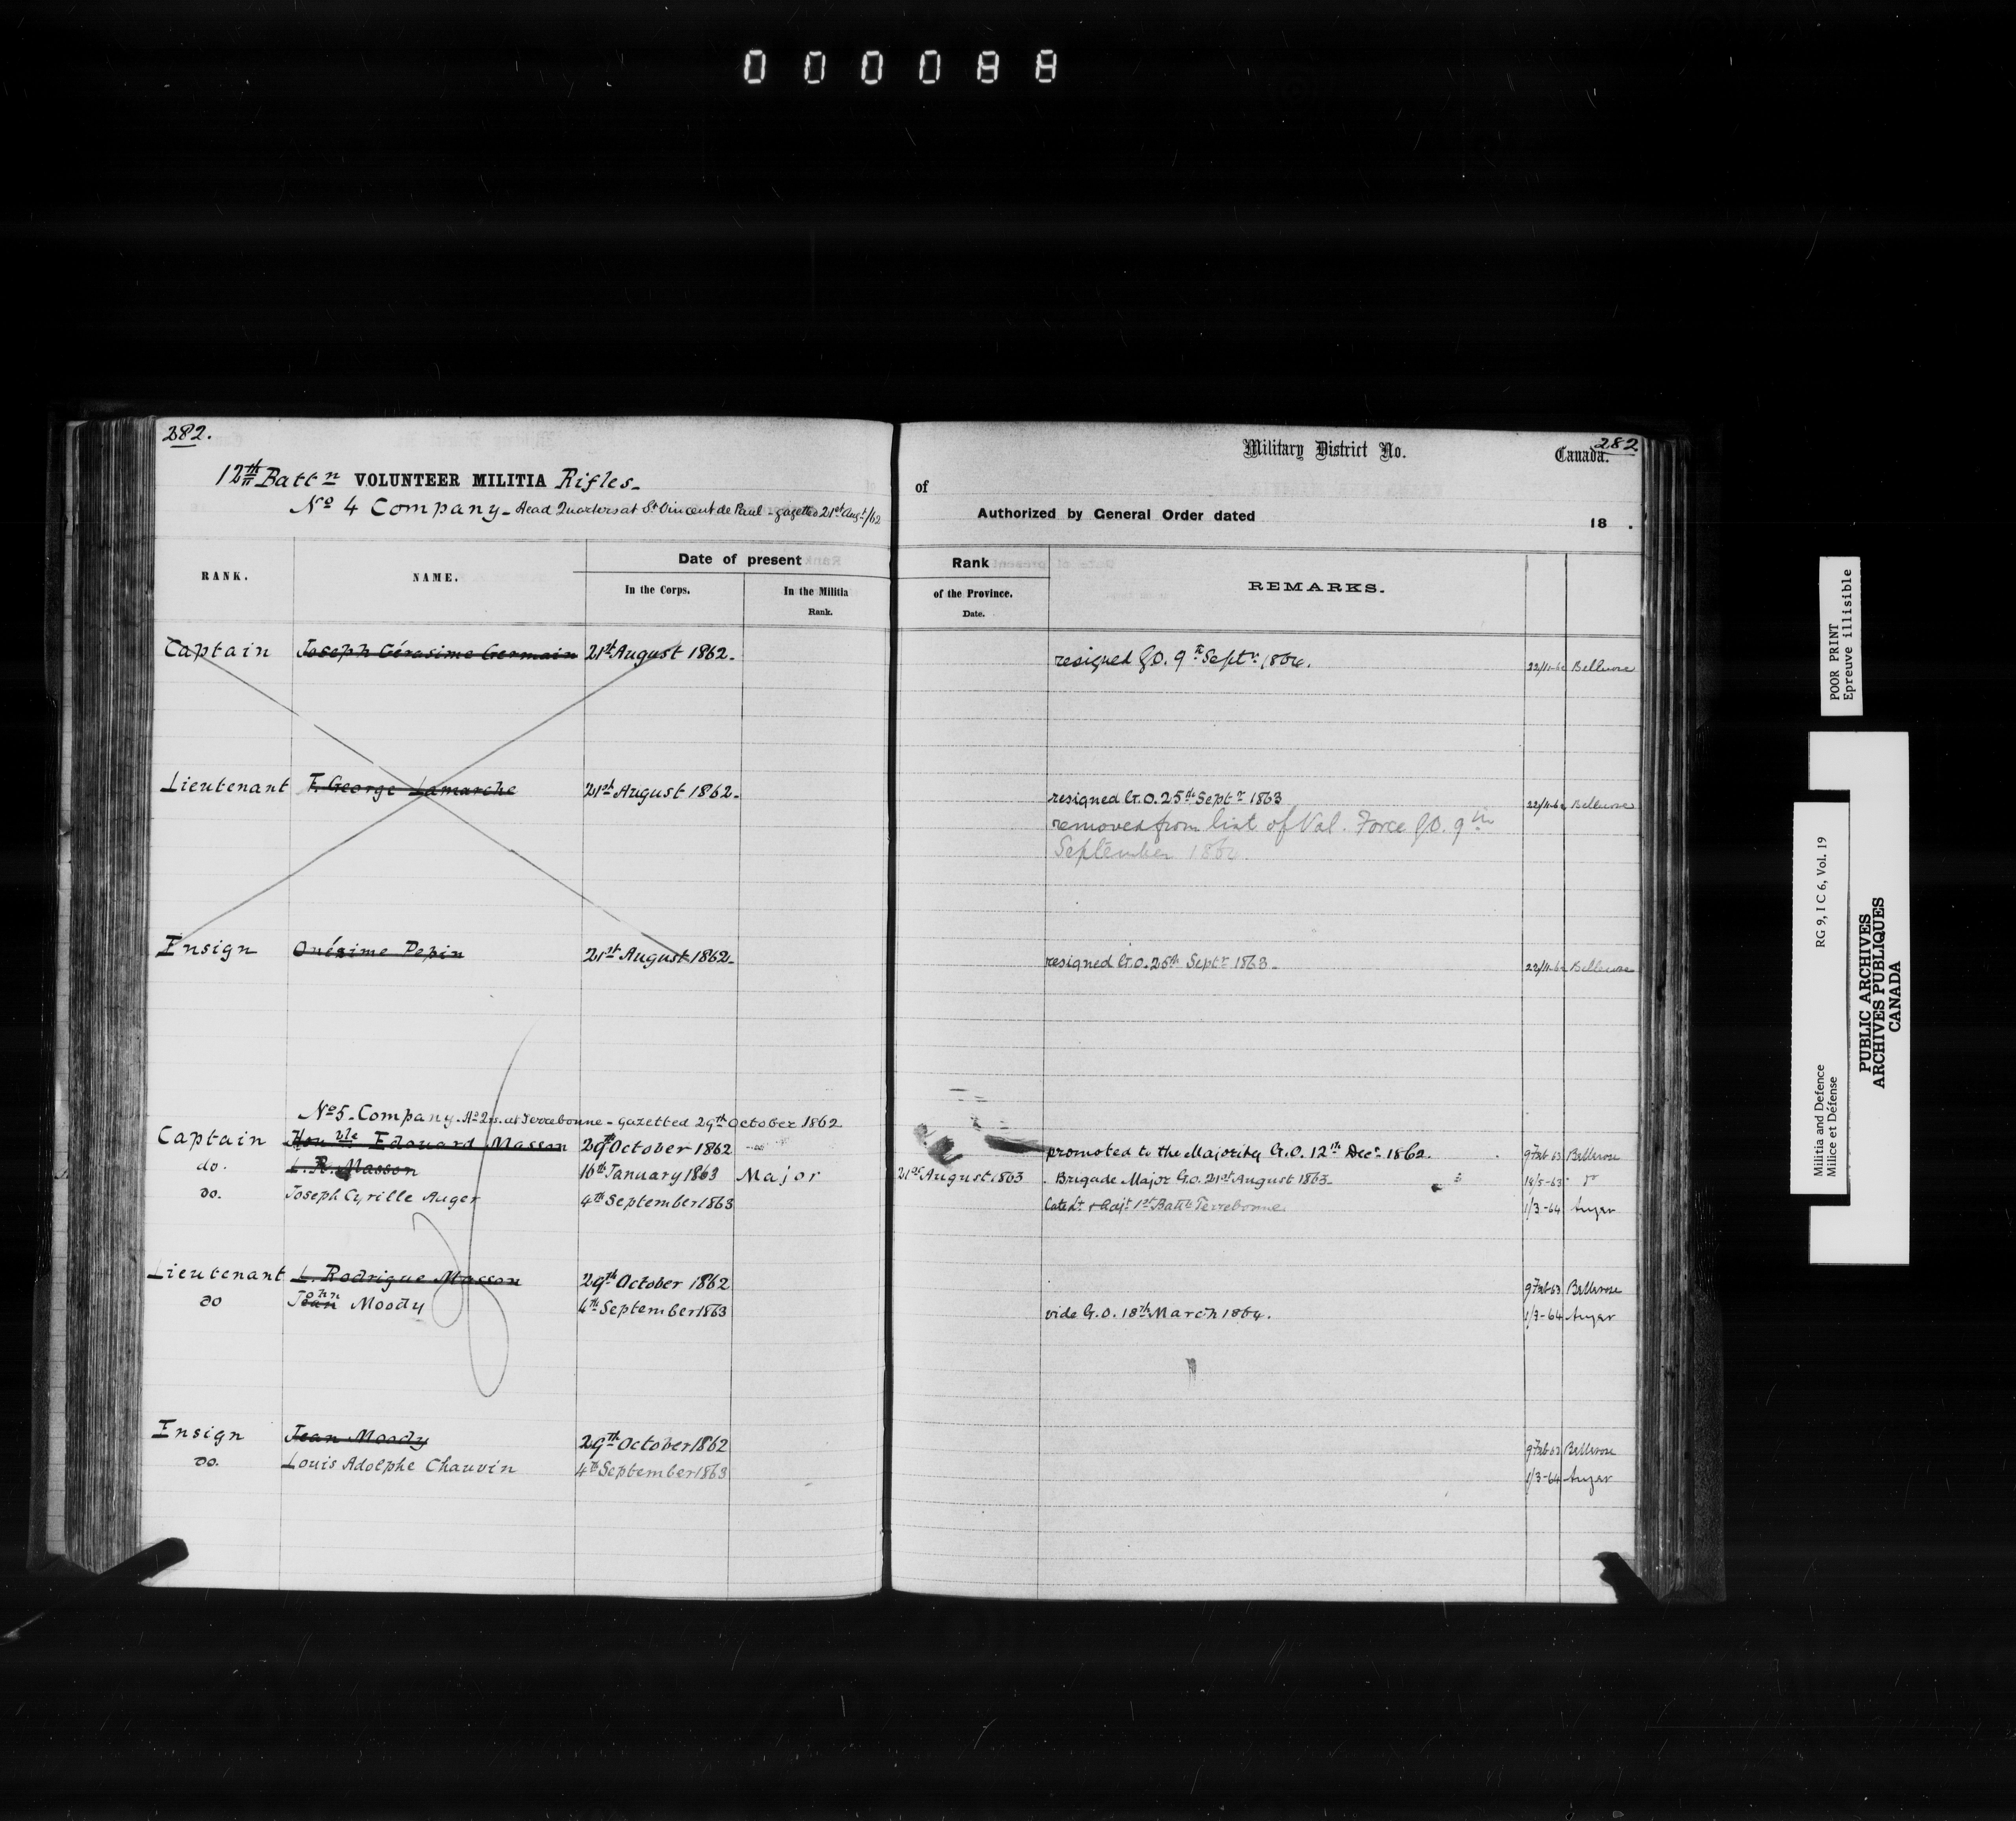 000088
282.
12th Battn VOLUNTEER MILITIA Rifles_
No 4 Company_ Head Quarters at St Vincent de Paul - gazetted 21st Augt/62
Military District No. Canada. 282
of
Authorized by General Order dated 18 .
RANK. NAME. Date of present Rank REMARKS.
In the Corps. In the Militia of the Province.
Rank. Date.
Captain Joseph Gérasime Germain 21st August 1862. resigned G.O. 9th Septr 1864. 22/11-62 Bellerose
Lieutenant F. George Lamarche 21st August 1862. resigned G.O. 25th Septr 1863 22/11-62 Bellerose
removed from list of Vol. Force G.O. 9th
September 1864.
Ensign Onésime Pepin 21st August 1862. resigned G.O. 25th Septr 1863. 22/11-62 Bellerose
No 5. Company. Hd Qrs. at Terrebonne - Gazetted 29th October 1862
Captain Honble Edouard Masson 29th October 1862 promoted to the Majority G.O. 12th Decr 1862. 9 Feb 63 Bellerose
do. L. R. Masson 16th January 1863 Major 21st August 1863 Brigade Major G.O. 21st August 1863. 18/5-63
do. Joseph Cyrille Auger 4th September 1863 late Lt & Adjt 1st Battn Terrebonne 1/3-64 Auger
Lieutenant L. Rodrigue Masson 29th October 1862 9 Feb 63 Bellerose
do Jean John Moody 4th September 1863 vide G.O. 18th March 1864. 1/3-64 Auger
Ensign Jean Moody 29th October 1862 9 Feb 63 Bellerose
do. Louis Adolphe Chauvin 4th September 1863 1/3-64 Auger
POOR PRINT
Epreuve illisible
Militia and Defence RG 9, I C 6, Vol. 19
Milice et Défense
PUBLIC ARCHIVES
ARCHIVES PUBLIQUES
CANADA